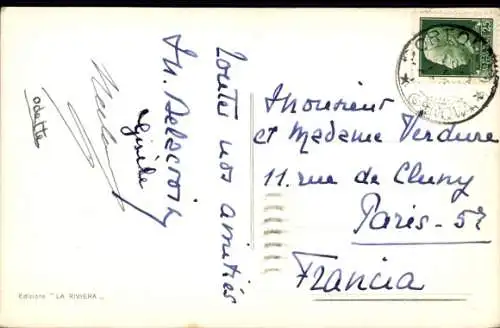 Toutes nos amitiés
In. Delacroix
Gisèle
odette
Monsieur
et Madame Verdure
11. rue de Cluny
Paris-5e
Francia
Edizione "LA RIVIERA"